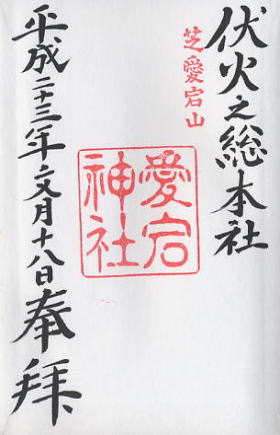 伏火之総本社
芝愛宕山
愛宕
神社
平成二十三年文月十八日奉拝